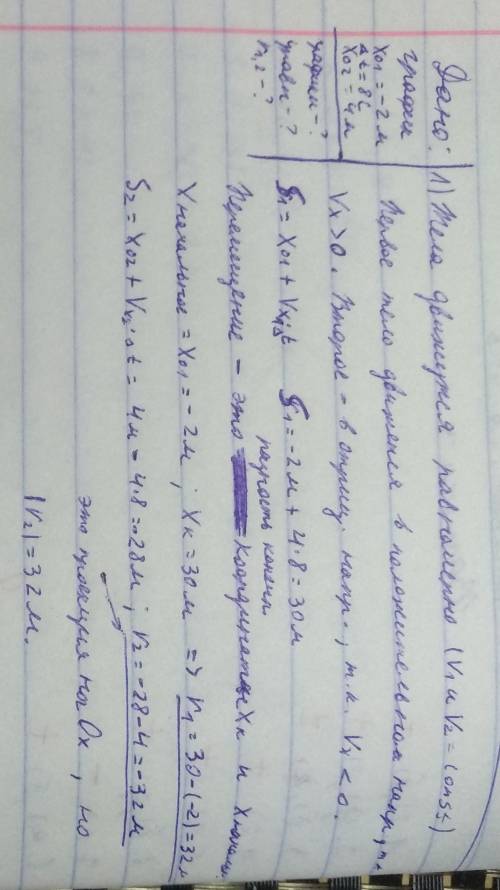 Дано:
график
X01 = -2 м
Δt = 8 с
X02 = 4 м
график - ?
уравн - ?
r1,2 - ?
1) Тела движутся равномерно (V1 и V2 = const)
Первое тело движется в положительном напр, т.к
Vx > 0. Второе - в отриц. напр., т.к. Vx < 0.
S1 = X01 + Vx1Δt S1 = -2 м + 4·8 = 30 м
Перемещение - это разность конечн
координаты Xк и Xначальн.
Xначальное = X01 = -2 м; Xк = 30 м => r1 = 30-(-2) = 32 м
S2 = X02 + Vx2·Δt = 4 м - 4·8 = -28 м; r2 = -28-4 = -32 м
это проекция на Ox, но
|r2| = 32 м.